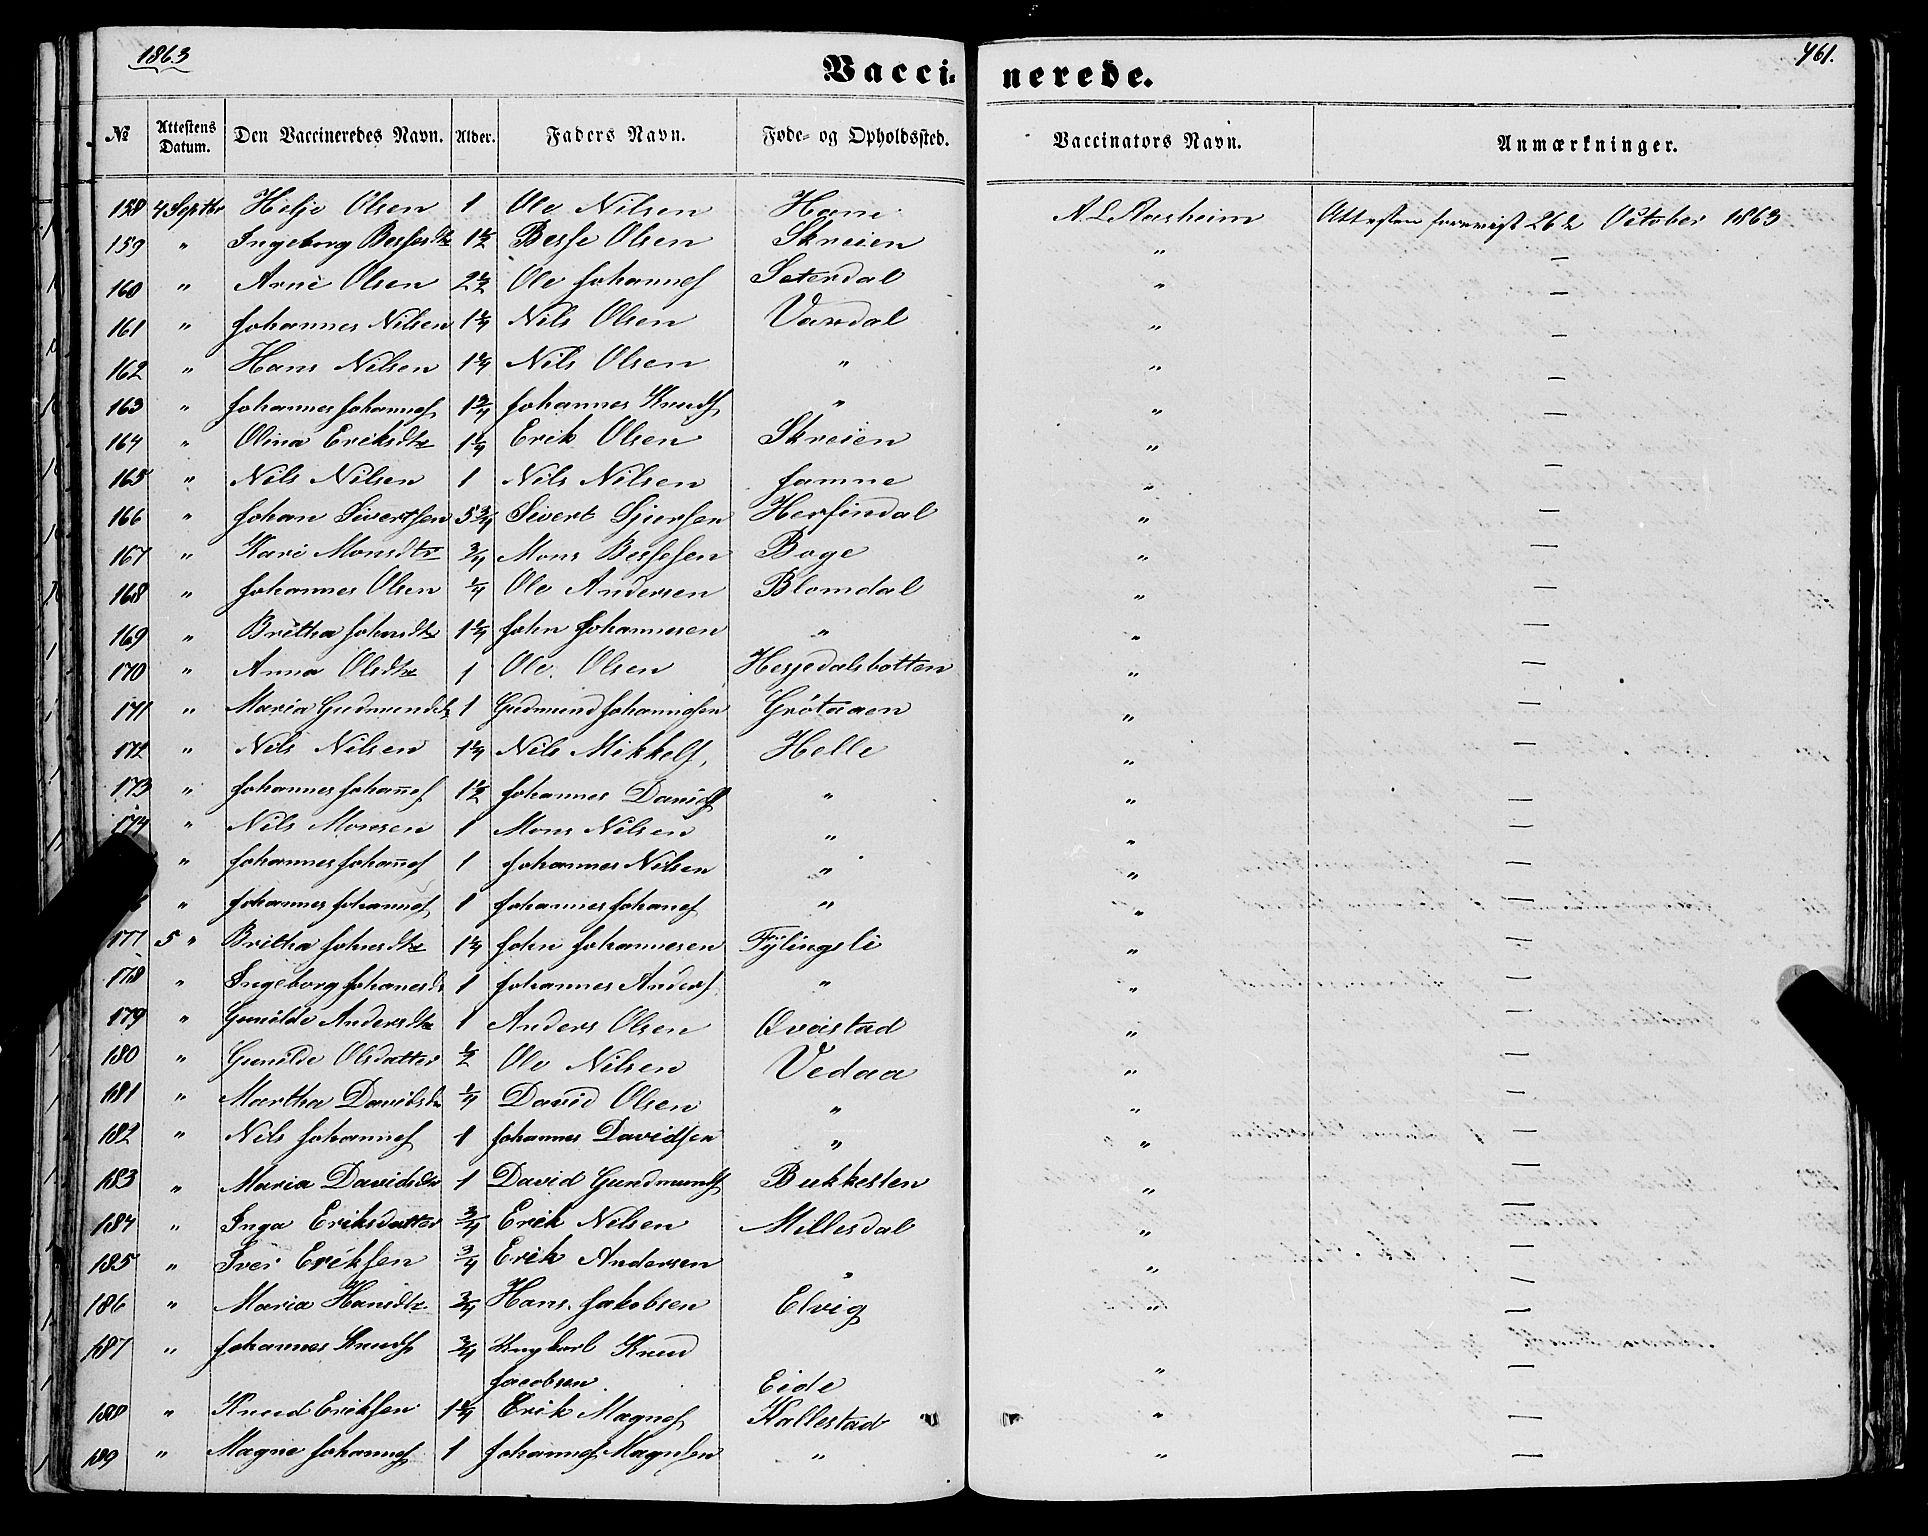 1863
461.
Vacci- nerede.
No Attestens Datum. Den Vaccineredes Navn. Alder. Faders Navn. Føde- og Opholdssted. Vaccinators Navn. Anmærkninger.
158 4 Septbr Helje Olsen 1 Ole Nilsen Ham A L Aasheim Attesten foreviist 26d October 1863
159 " Ingeborg Bessesdtr 1 1/2 Besse Olsen Skreien " —
160 " Arne Olsen 2 1/2 Ole Johannes Seterdal " —
161 " Johannes Nilsen 1 1/4 Nils Olsen Vardal " —
162 " Hans Nilsen 1 1/4 Nils Olsen " " —
163 " Johannes Johannes 1 3/4 Johannes Knuds " " —
164 " Olina Eriksdtr 1 1/4 Erik Olsen Skreien " —
165 " Nils Nilsen 1 Nils Nilsen Famne " —
166 " Johan Sivertsen 5 3/4 Sivert Sjursen Herfindal " —
167 " Kari Monsdtr 3/4 Mons Bessesen Boge " —
168 " Johannes Olsen 1/4 Ole Andersen Blomdal " —
169 " Britha Johnsdtr 1 1/4 John Johannesen " " —
170 " Anna Olsdtr 1 Ole Olsen Hesjedalsbotten " —
171 " Maria Gudmundsdtr 1 Gudmund Johannesen Grötaaen " —
172 " Nils Nilsen 1 1/4 Nils Mikkels. Helle " —
173 " Johannes Johannes 1 1/2 Johannes Davids " " —
174 " Nils Monsen 1 Mons Nilsen " " —
" Johannes Johannes 1 Johannes Nilsen " " —
" Johannes Johannes 1 Johannes Johanes " " —
177 5 " Britha Johnsdtr 1 1/4 John Johannesen Fylingsli " —
178 " Ingeborg Johanesdr 1 Johannes Anders " " —
179 " Gunilde Andersdtr 1 Anders Olsen Qveistad " —
180 " Gunilde Olsdatter 1/2 Ole Nilsen Vedaa " —
181 " Martha Davidsdr 1/4 David Olsen " " —
182 " Nils Johannes 1 Johannes Davidsen " " —
183 " Maria Davidsdtr 1 David Gundmunds Bukkesten " —
184 " Inga Eriksdatter 3/4 Erik Nilsen Millesdal " —
185 " Iver Eriksen 3/4 Erik Andersen " " —
186 " Maria Hansdtr 3/4 Hans Jakobsen Elvig " —
187 " Johannes Knuds 3/4 Ungkarl Knud
Jacobsen. Eide " —
188 " Knud Eriksen 1 1/4 Erik Magnes Kallestad " —
189 " Magne Johannes 1 Johannes Magnesen " " —